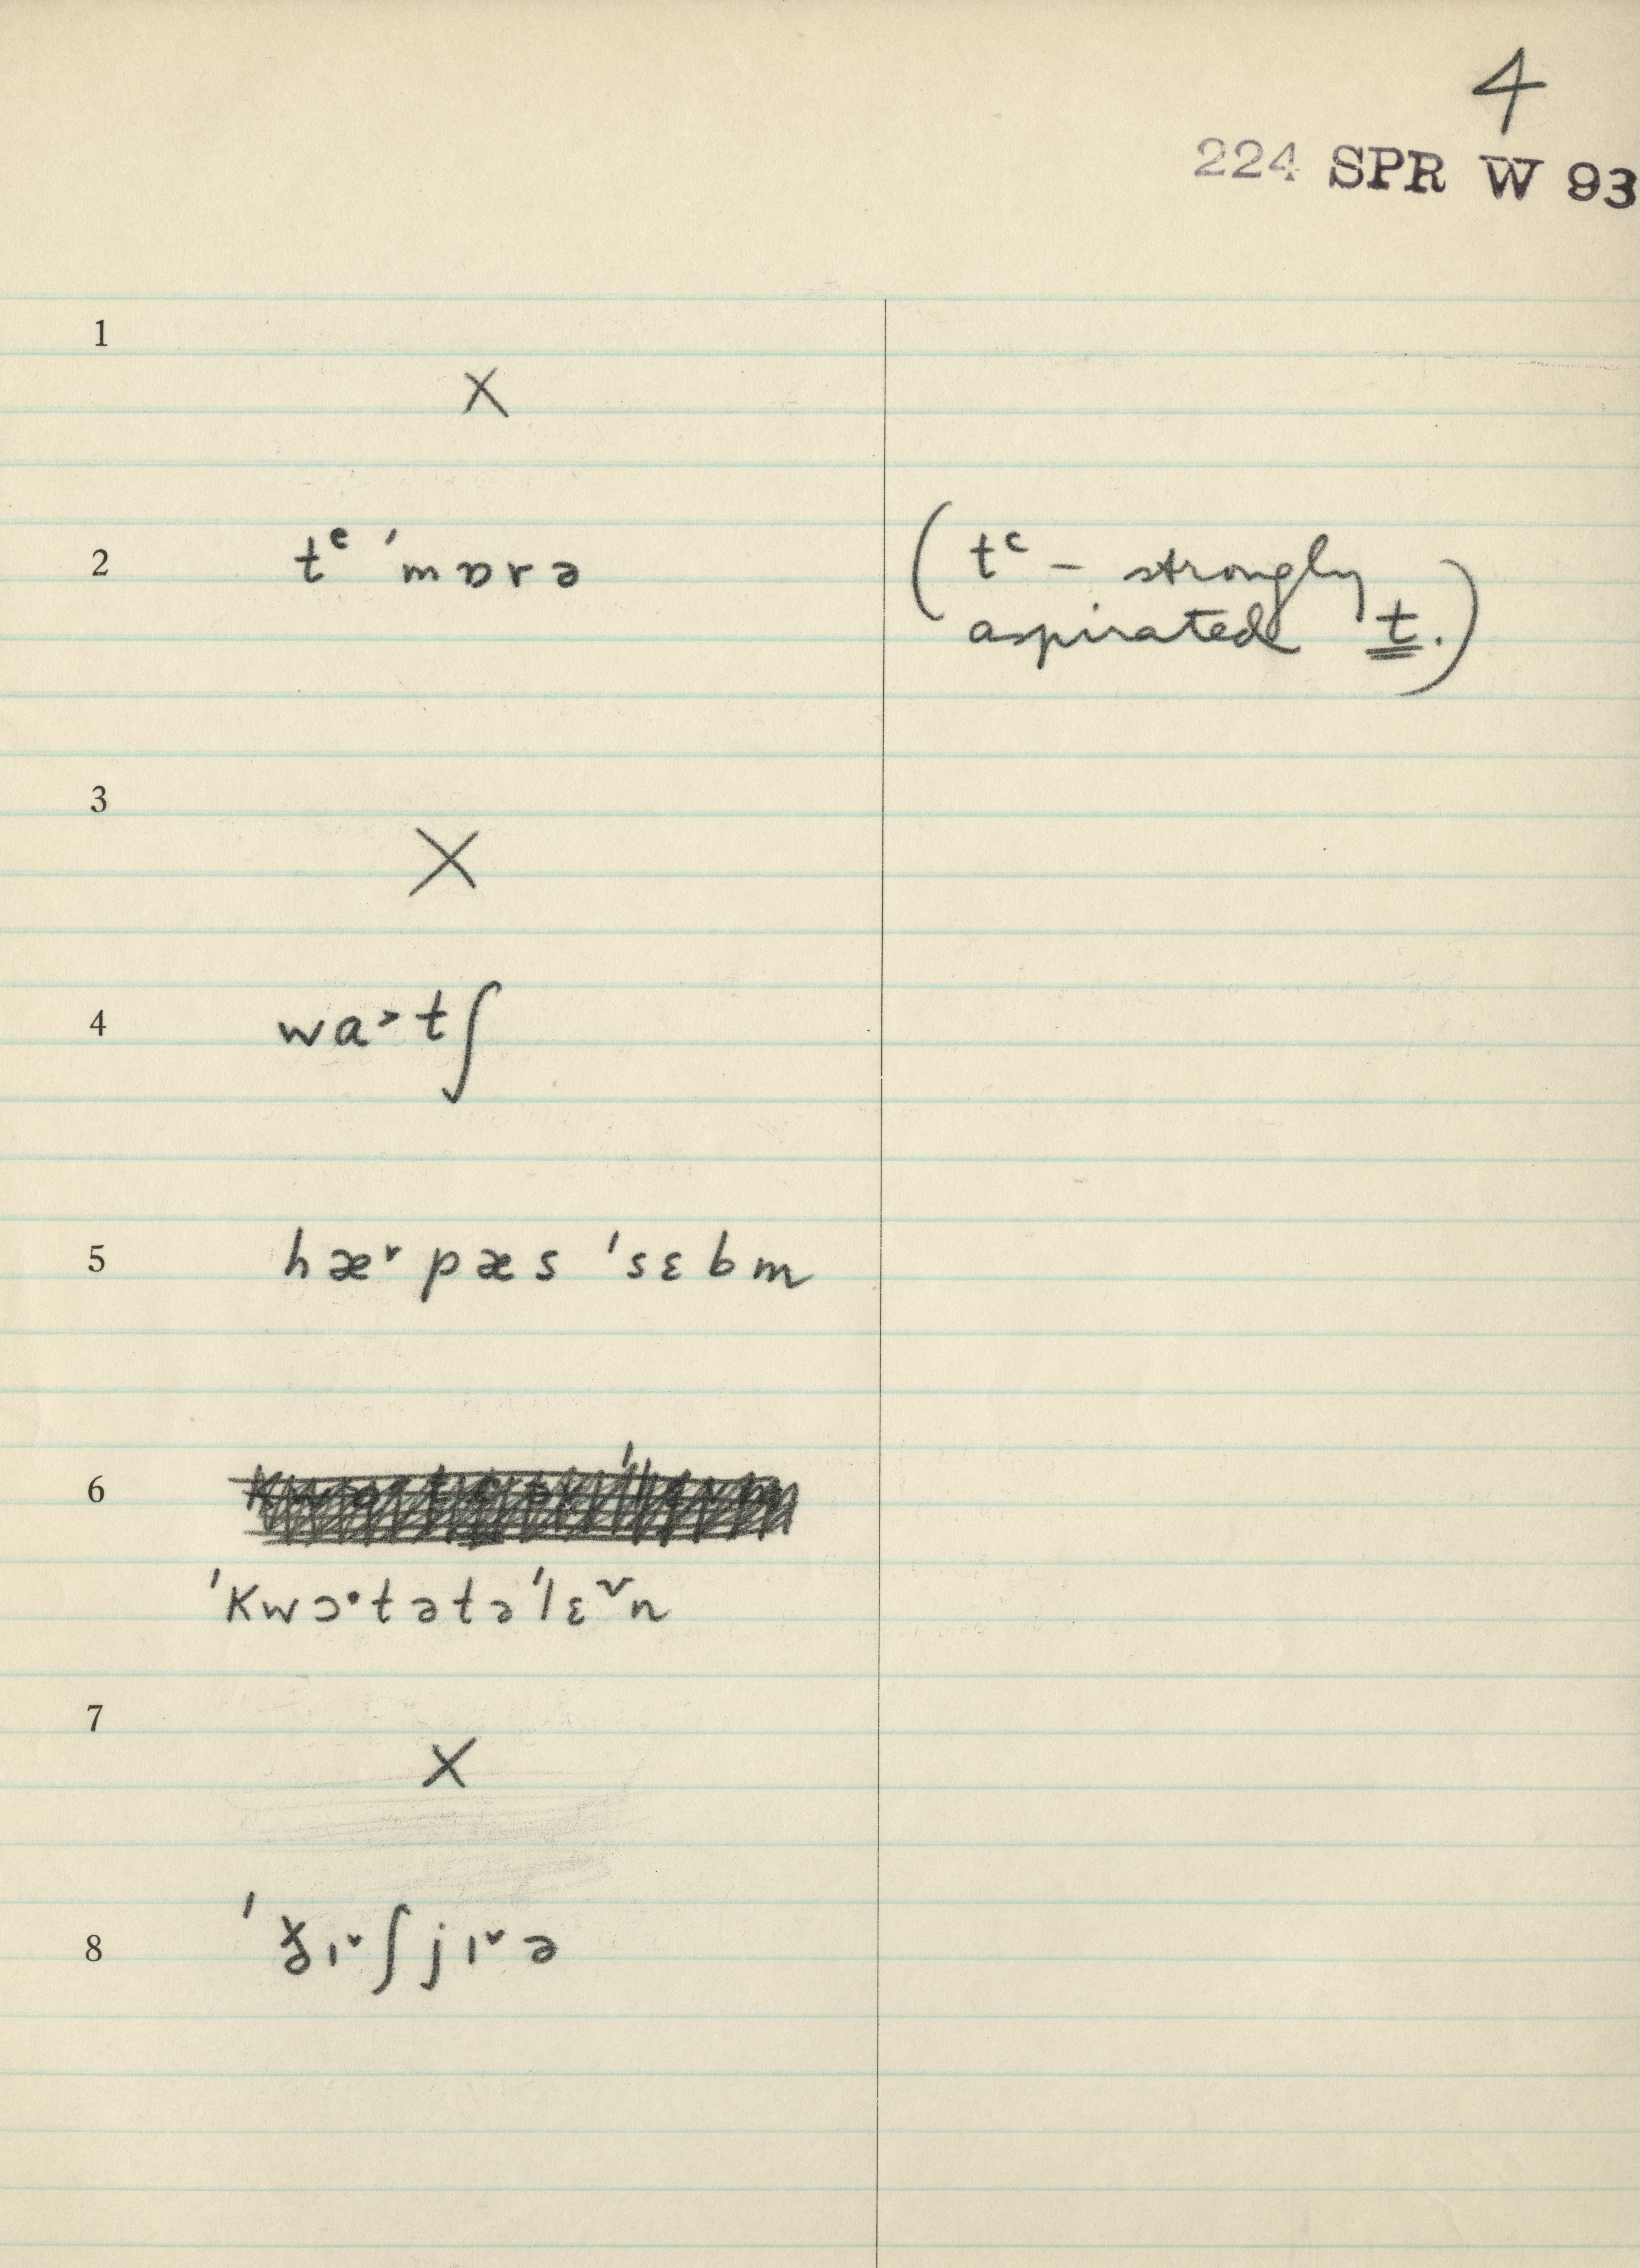 4
224 SPR W 93
1
X
2 tᶜ ˈmɒrə (tᶜ – strongly
aspirated t.)
3
X
4 wa˃tʃ
5 hæ˅pæs ˈsɛbm
6
ˈKwɔ·tətəˈlɛ˅n
7
X
8 ɪ˅ʃjɪ˅ə